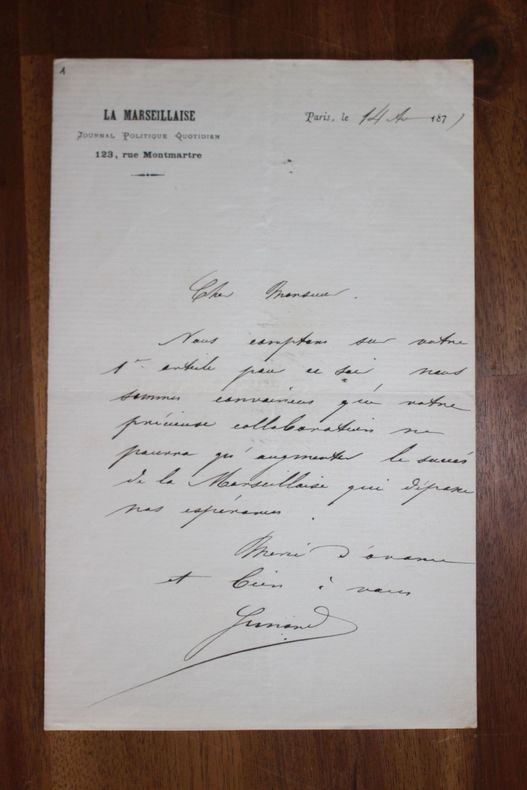 1
LA MARSEILLAISE
JOURNAL POLITIQUE QUOTIDIEN
123, rue Montmartre
Paris, le 14 187
Cher Monsieur.
Nous comptons sur votre
1er article pour ce soir nous
sommes convaincus que votre
précieuse collaboration ne
pourra qu'augmenter le succès
de la Marseillaise qui dépasse
nos espérances.
Merci d'avance
et bien à vous